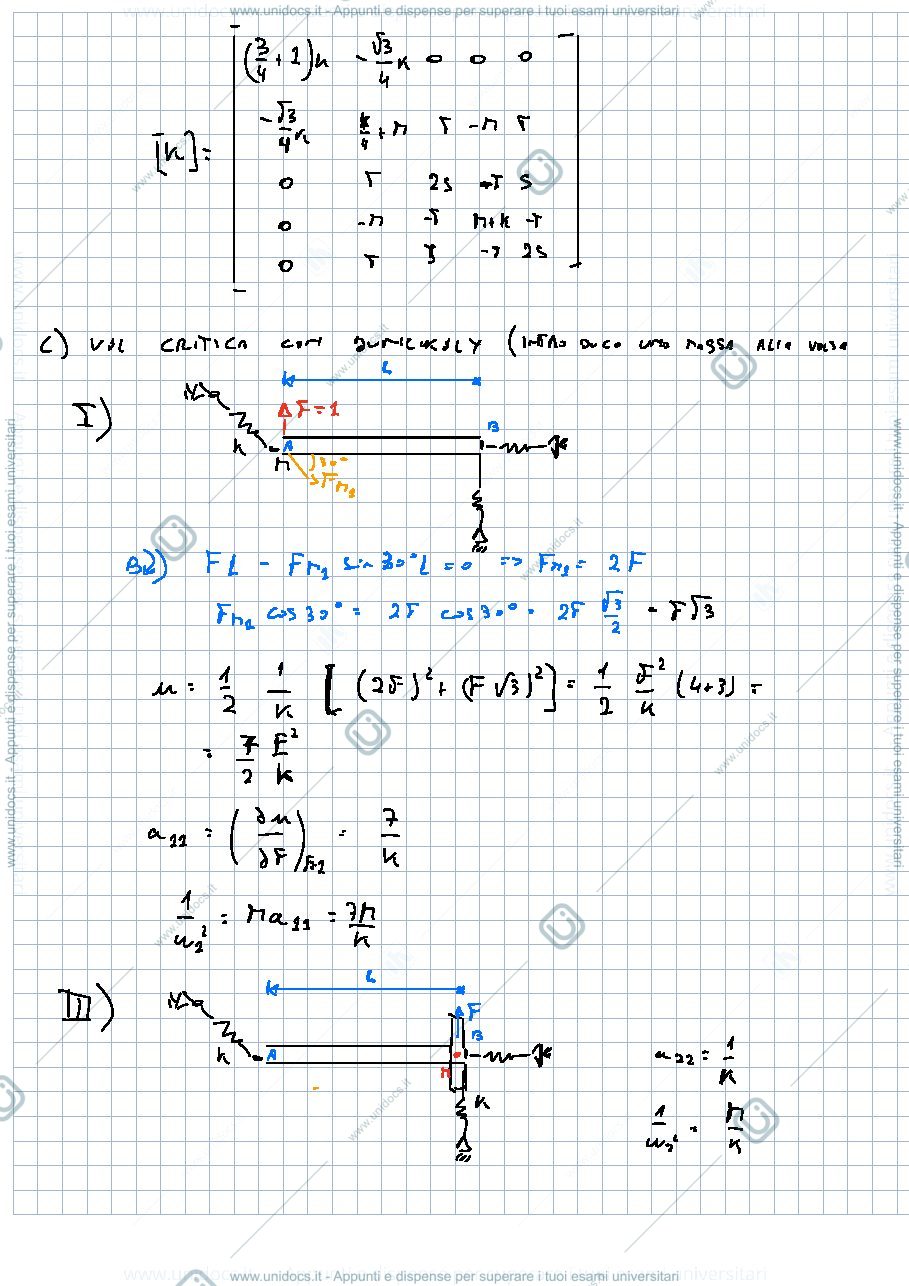 www.unidocs.it - Appunti e dispense per superare i tuoi esami universitari
(3/4 + 1)k  -√3/4 k  0  0  0
-√3/4 k  k/4 + r  T  -r  T
[K] =
0  T  2S  -T  S
0  -r  -T  r+k  -T
0  T  S  -T  2S
C) VEL CRITICA CON DUNKERLEY (INTRODUCO UNA MASSA ALLA VOLTA
L
I)
F=1
K A B
M 30°
Fm1
B2) FL - Fm1 sin 30° L = 0 => Fm1 = 2F
Fm1 cos 30° = 2F cos 30° = 2F √3/2 = F√3
u = 1/2 1/k [(2F)² + (F√3)²] = 1/2 F²/k (4+3) =
= 7/2 F²/k
a11 = (∂u/∂F)F=1 = 7/k
1/ω1² = Ma11 = 7M/k
L
II)
F
K A B
M
K
a22 = 1/k
1/ω2² = M/k
www.unidocs.it - Appunti e dispense per superare i tuoi esami universitari